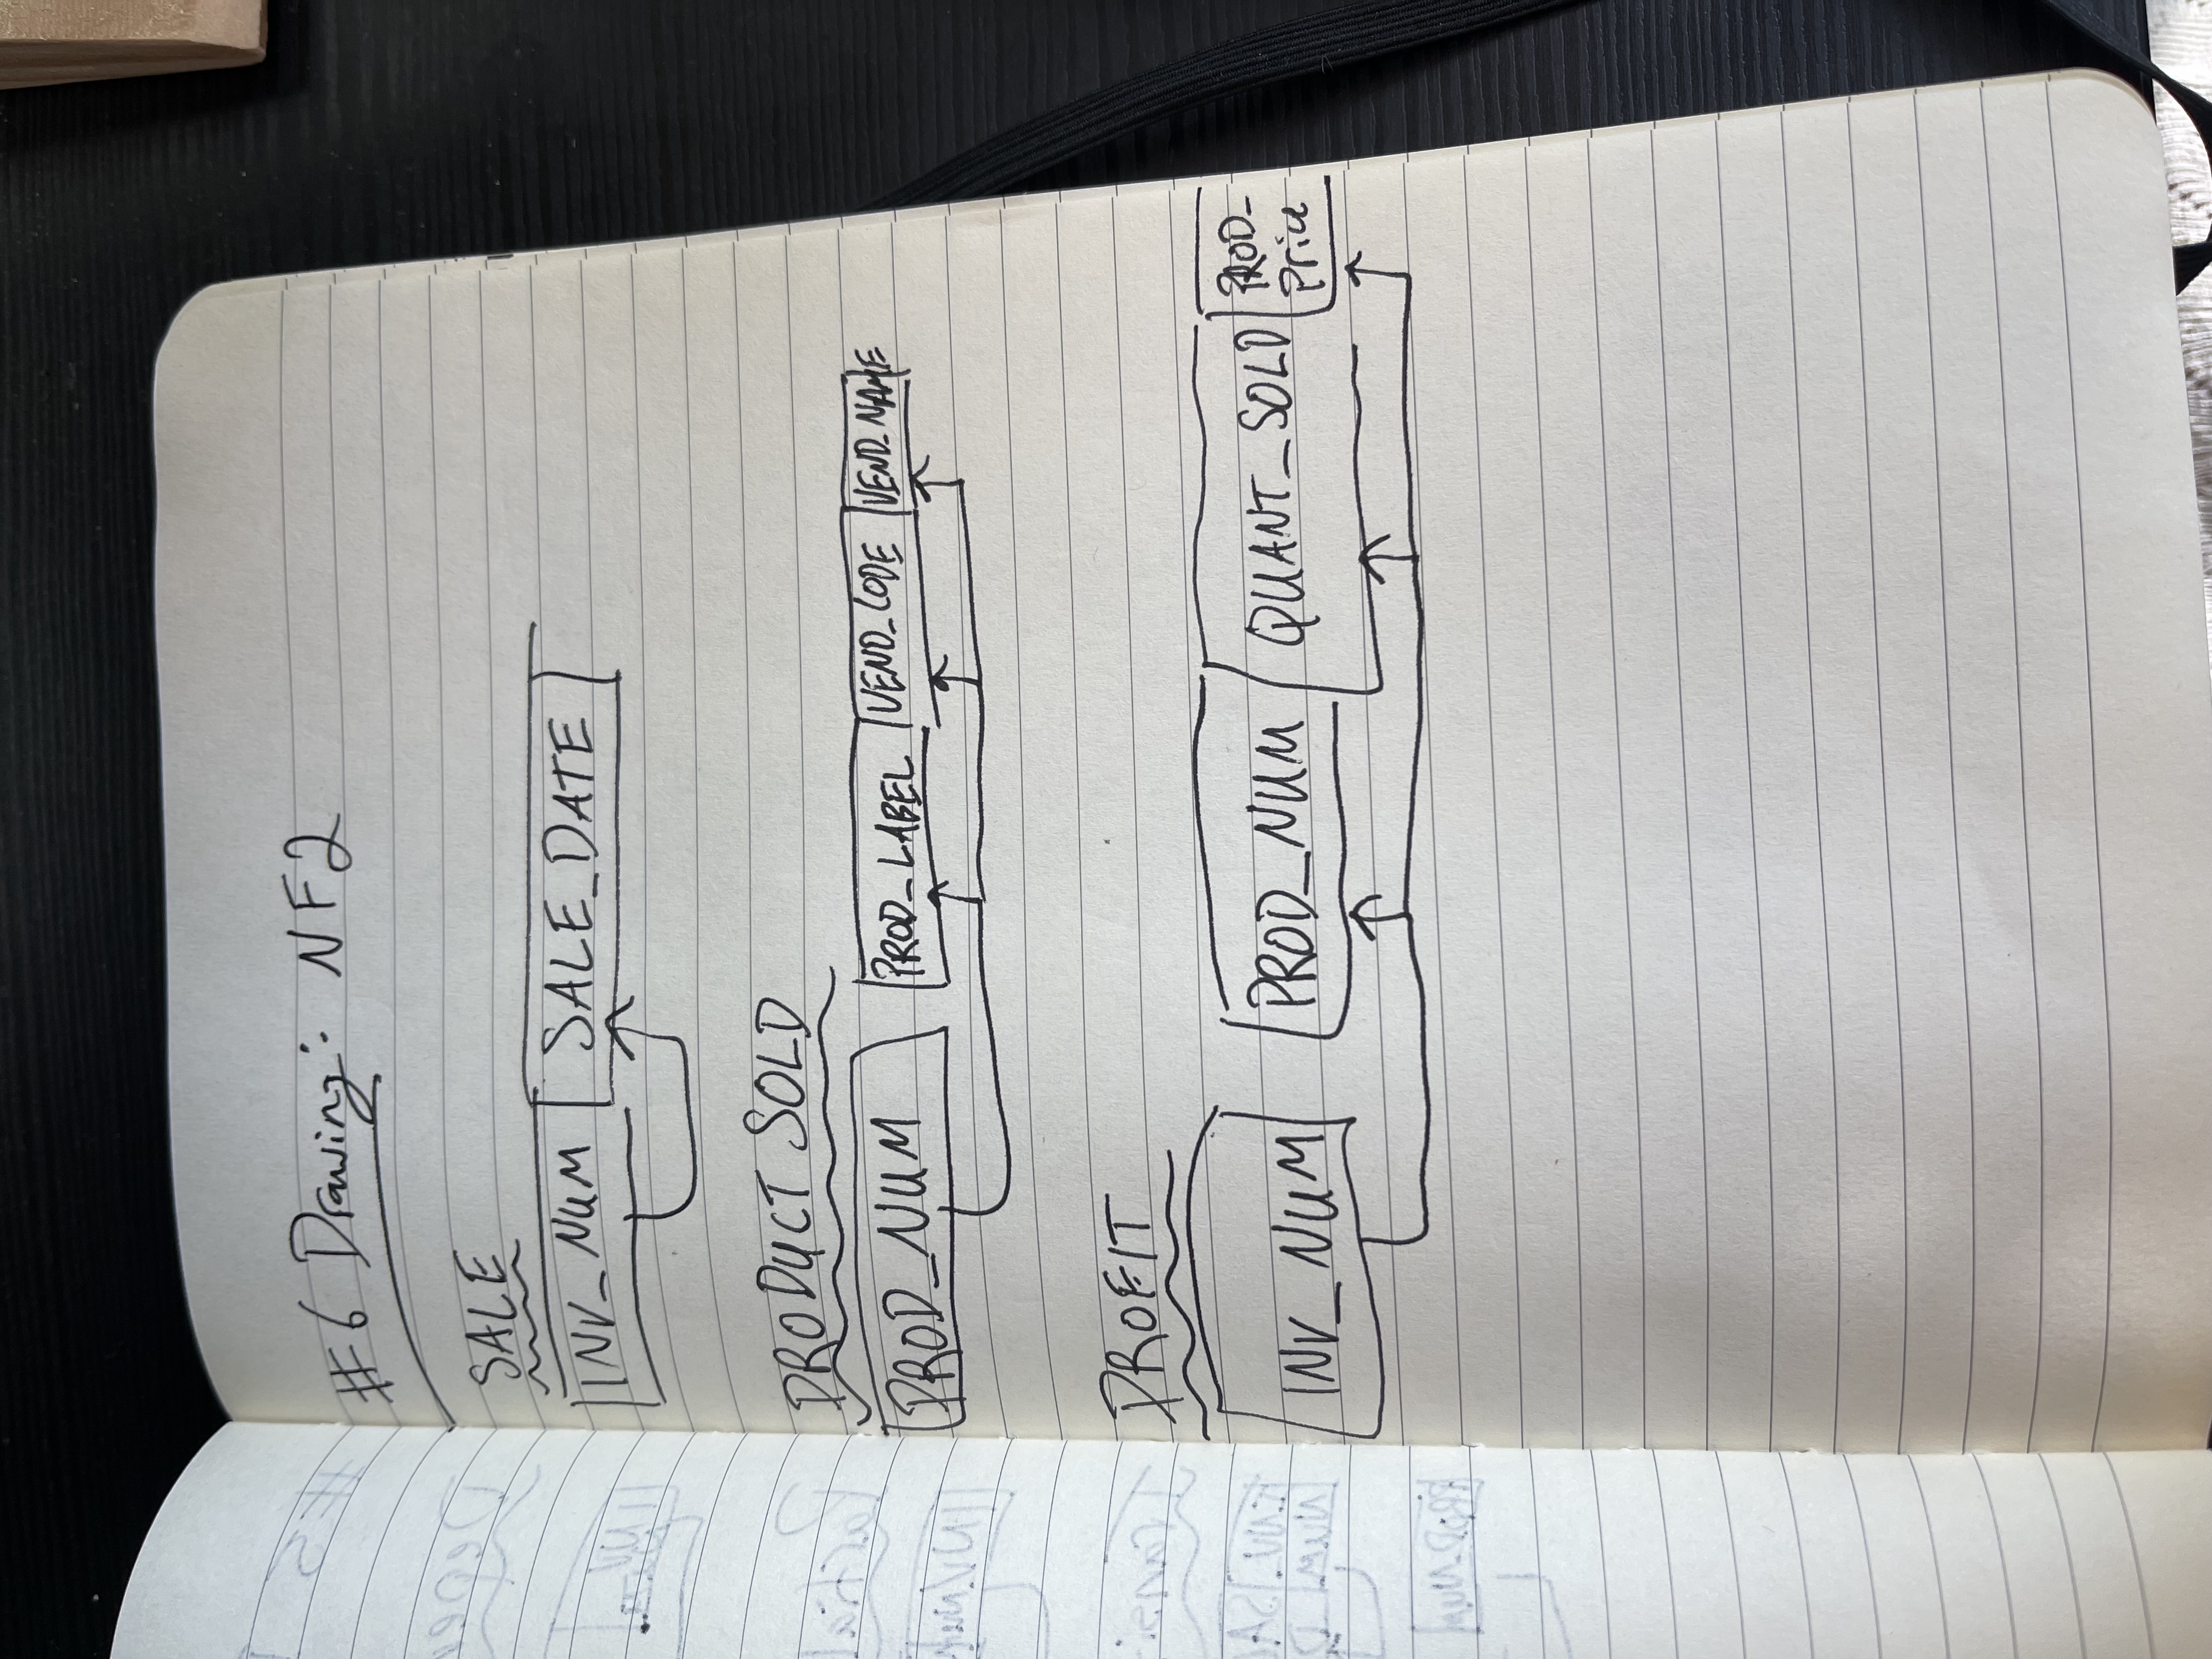 #6 Drawing: NF2
SALE
INV_NUM SALE_DATE
PRODUCT SOLD
PROD_NUM PROD_LABEL VEND_CODE VEND_NAME
PROFIT
INV_NUM PROD_NUM QUANT_SOLD PROD_
Price